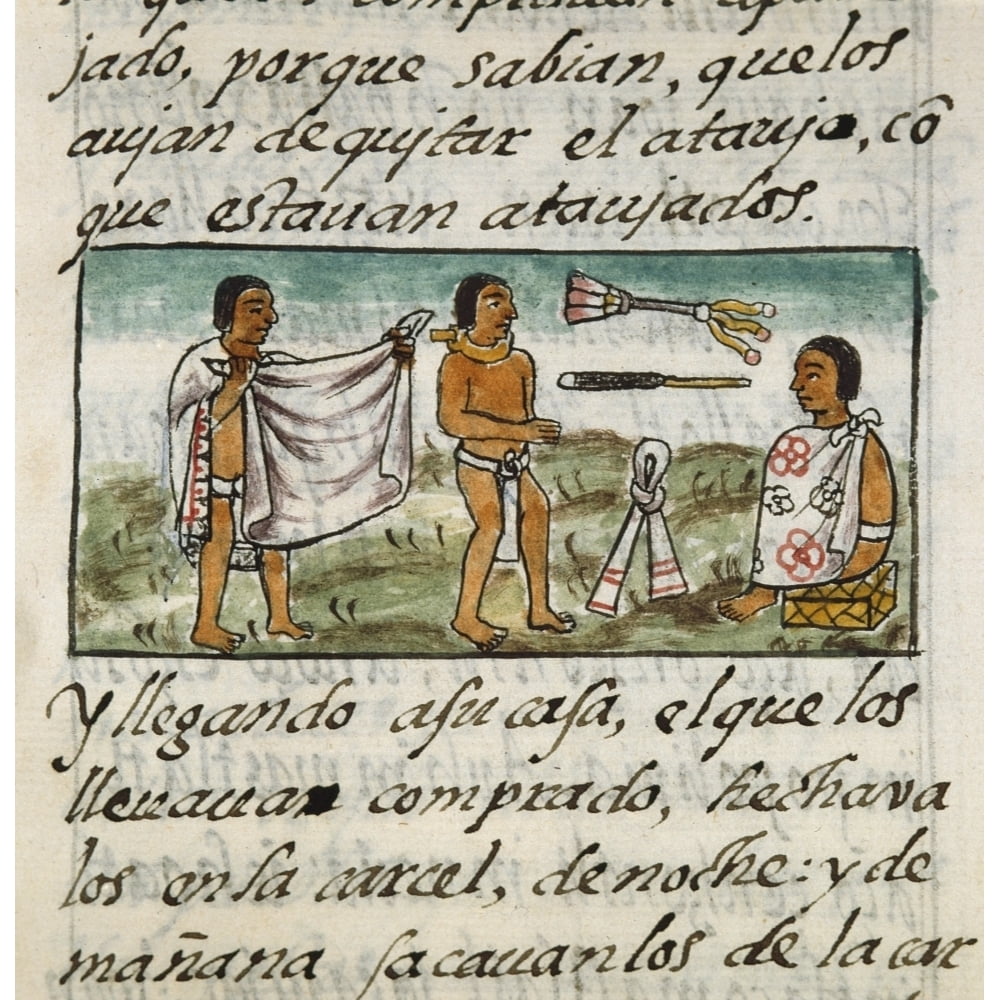 jado, porque sabian, quelos
auian de quitar el atauio, cõ
que estauan atauiados.
Y llegando asu casa, elque los
lleuauan comprado, hechava
los en la carcel, de noche: y de
mañana sacauanlos de la car